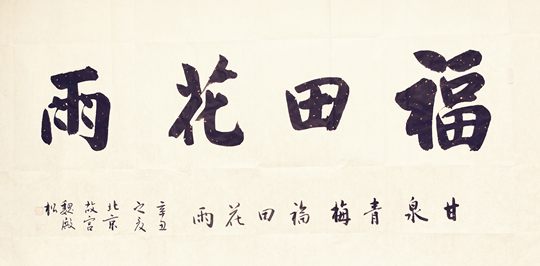 福田花雨
甘泉青梅福田花雨
辛丑
之夏
北京
故宫
魏殿
松